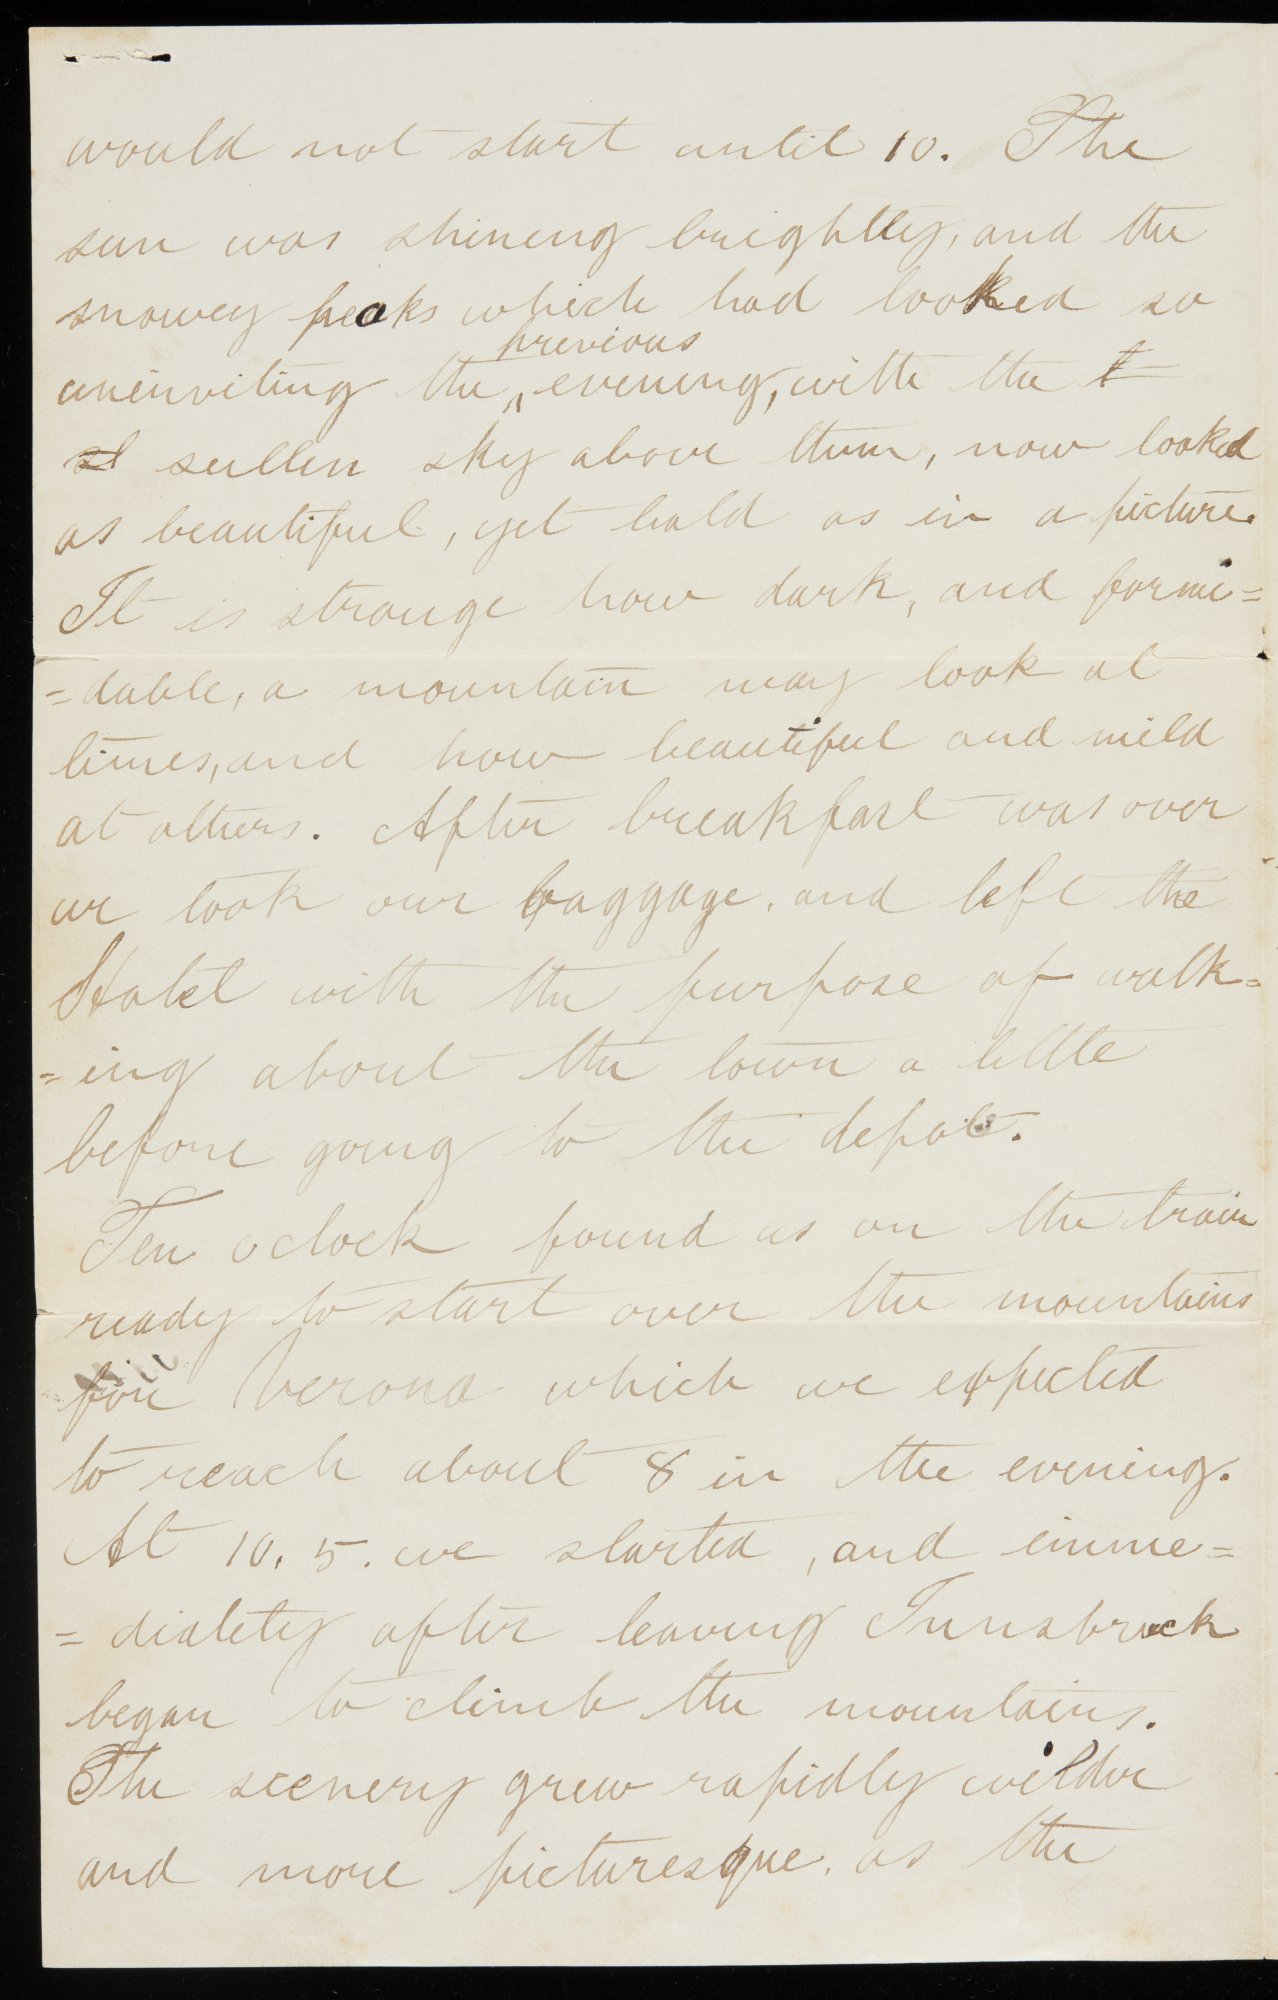 would not start until 10. The
sun was shining brightly, and the
snowey peaks which had looked so
previous
uninviting the ^ evening, with the t
sl sullen sky above them, now looked
as beautiful, yet bold as in a picture.
It is strange how dark, and formi=
=dable, a mountain may look at
times, and how beautiful and mild
at others. After breakfast was over
we took our baggage, and left the
Hotel with the purpose of walk=
=ing about the town a little
before going to the depot.
Ten oclock found us on the train
ready to start over the mountains
for Verona which we expected
to reach about 8 in the evening.
At 10, 5. we started, and imme=
=diately after leaving Innsbruck
began to climb the mountains.
The scenery grew rapidly wilder
and more picturesque, as the